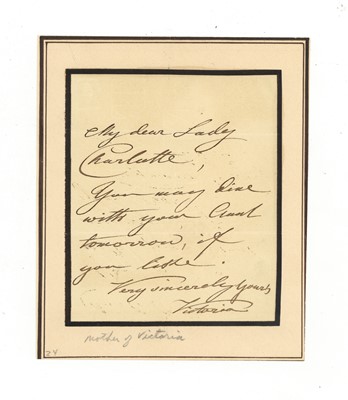 My dear Lady
Charlotte,
You may dine
with your Aunt
tomorrow, if
you like.
Very sincerely yours
Victoria
mother of Victoria
24